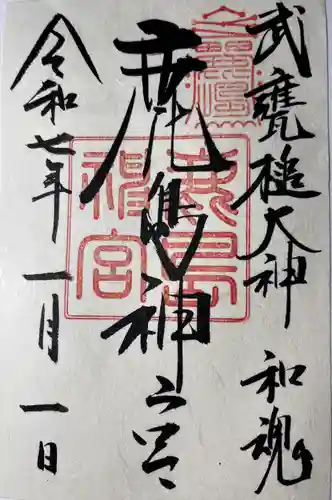 武甕槌大神 和魂
鹿島神宮
鹿島神宮
令和七年 一月一日